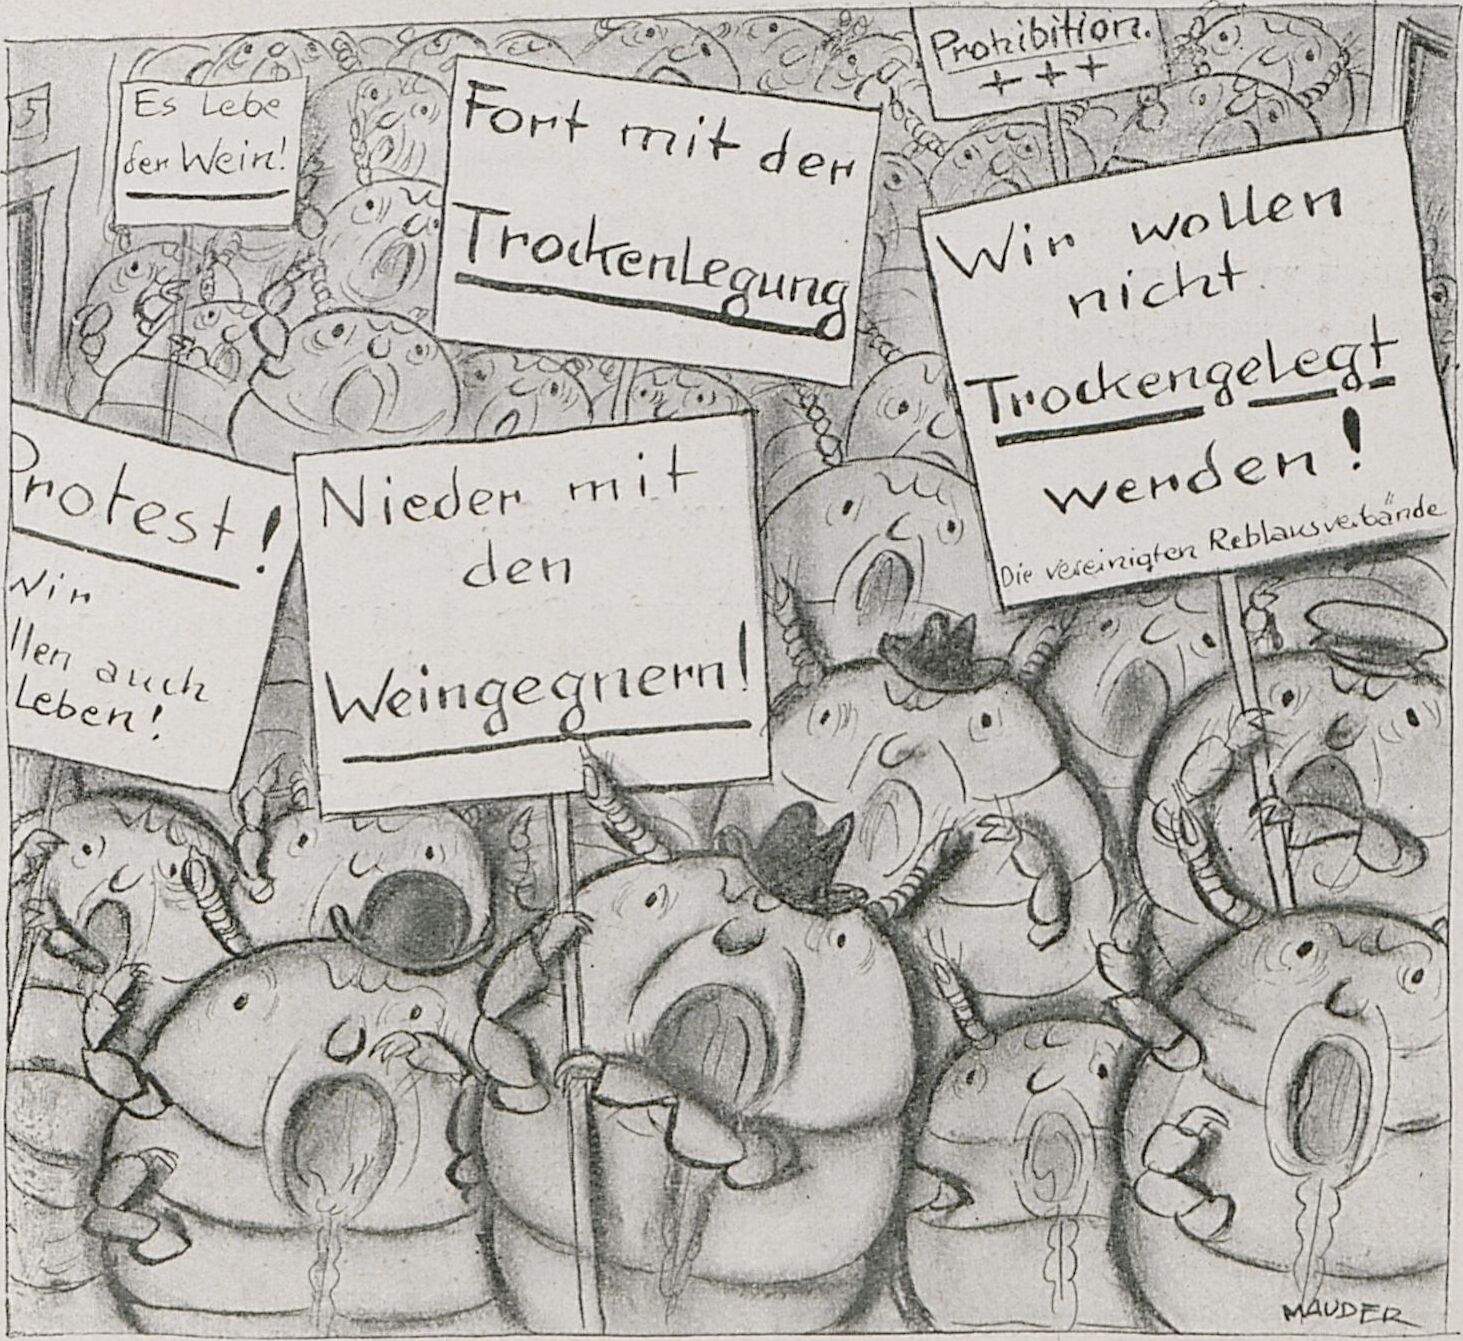 Prohibition.
+++
Es Lebe
der Wein!
Fort mit der
Trockenlegung
Wir wollen
nicht
Trockengelegt
werden!
Die vereinigten Reblausverbände
Protest!
Wir
llen auch
Leben!
Nieder mit
den
Weingegnern!
5
MAUDER